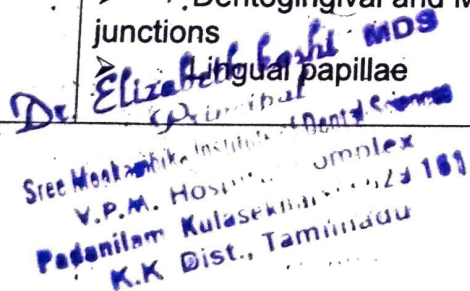 Dentogingival and M
junctions
➤ Lingual papillae
Dr. Elizabeth Koshi MDS
Principal
Sree Mookambika Institute of Dental Sciences
V.P.M. Hos Complex
Padanilam Kulasekha 161
K.K Dist., Tamilnadu